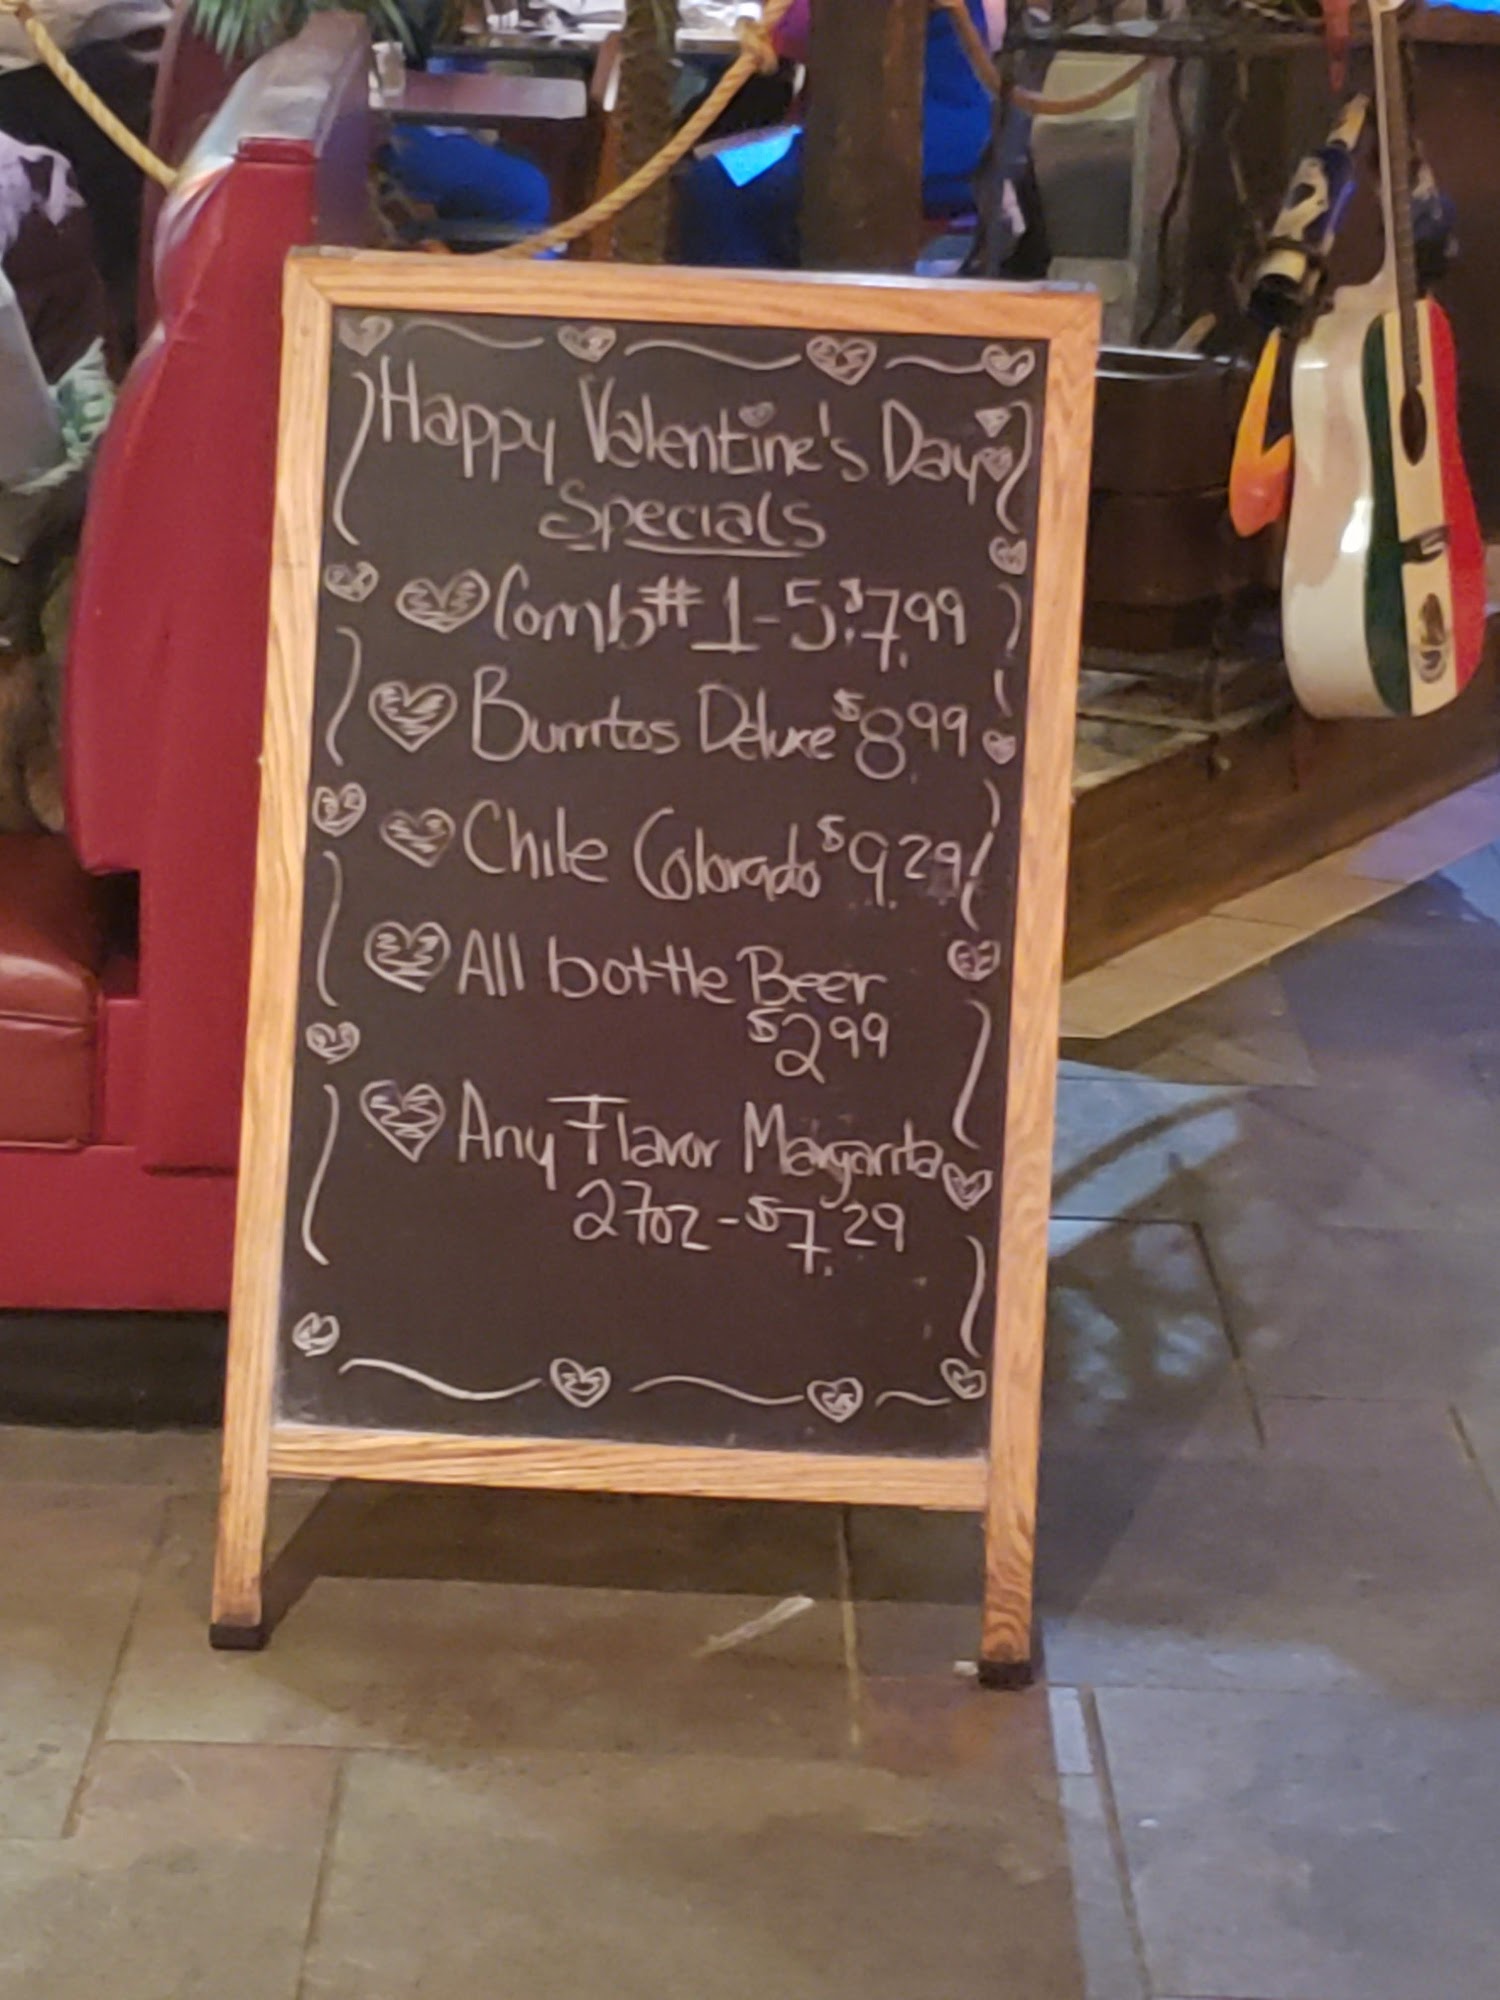 Happy Valentine's Day
Specials
Comb# 1-5 $7.99
Burritos Deluxe $8.99
Chile Colorado $9.29
All bottle Beer
$2.99
Any Flavor Margarita
27oz - $7.29